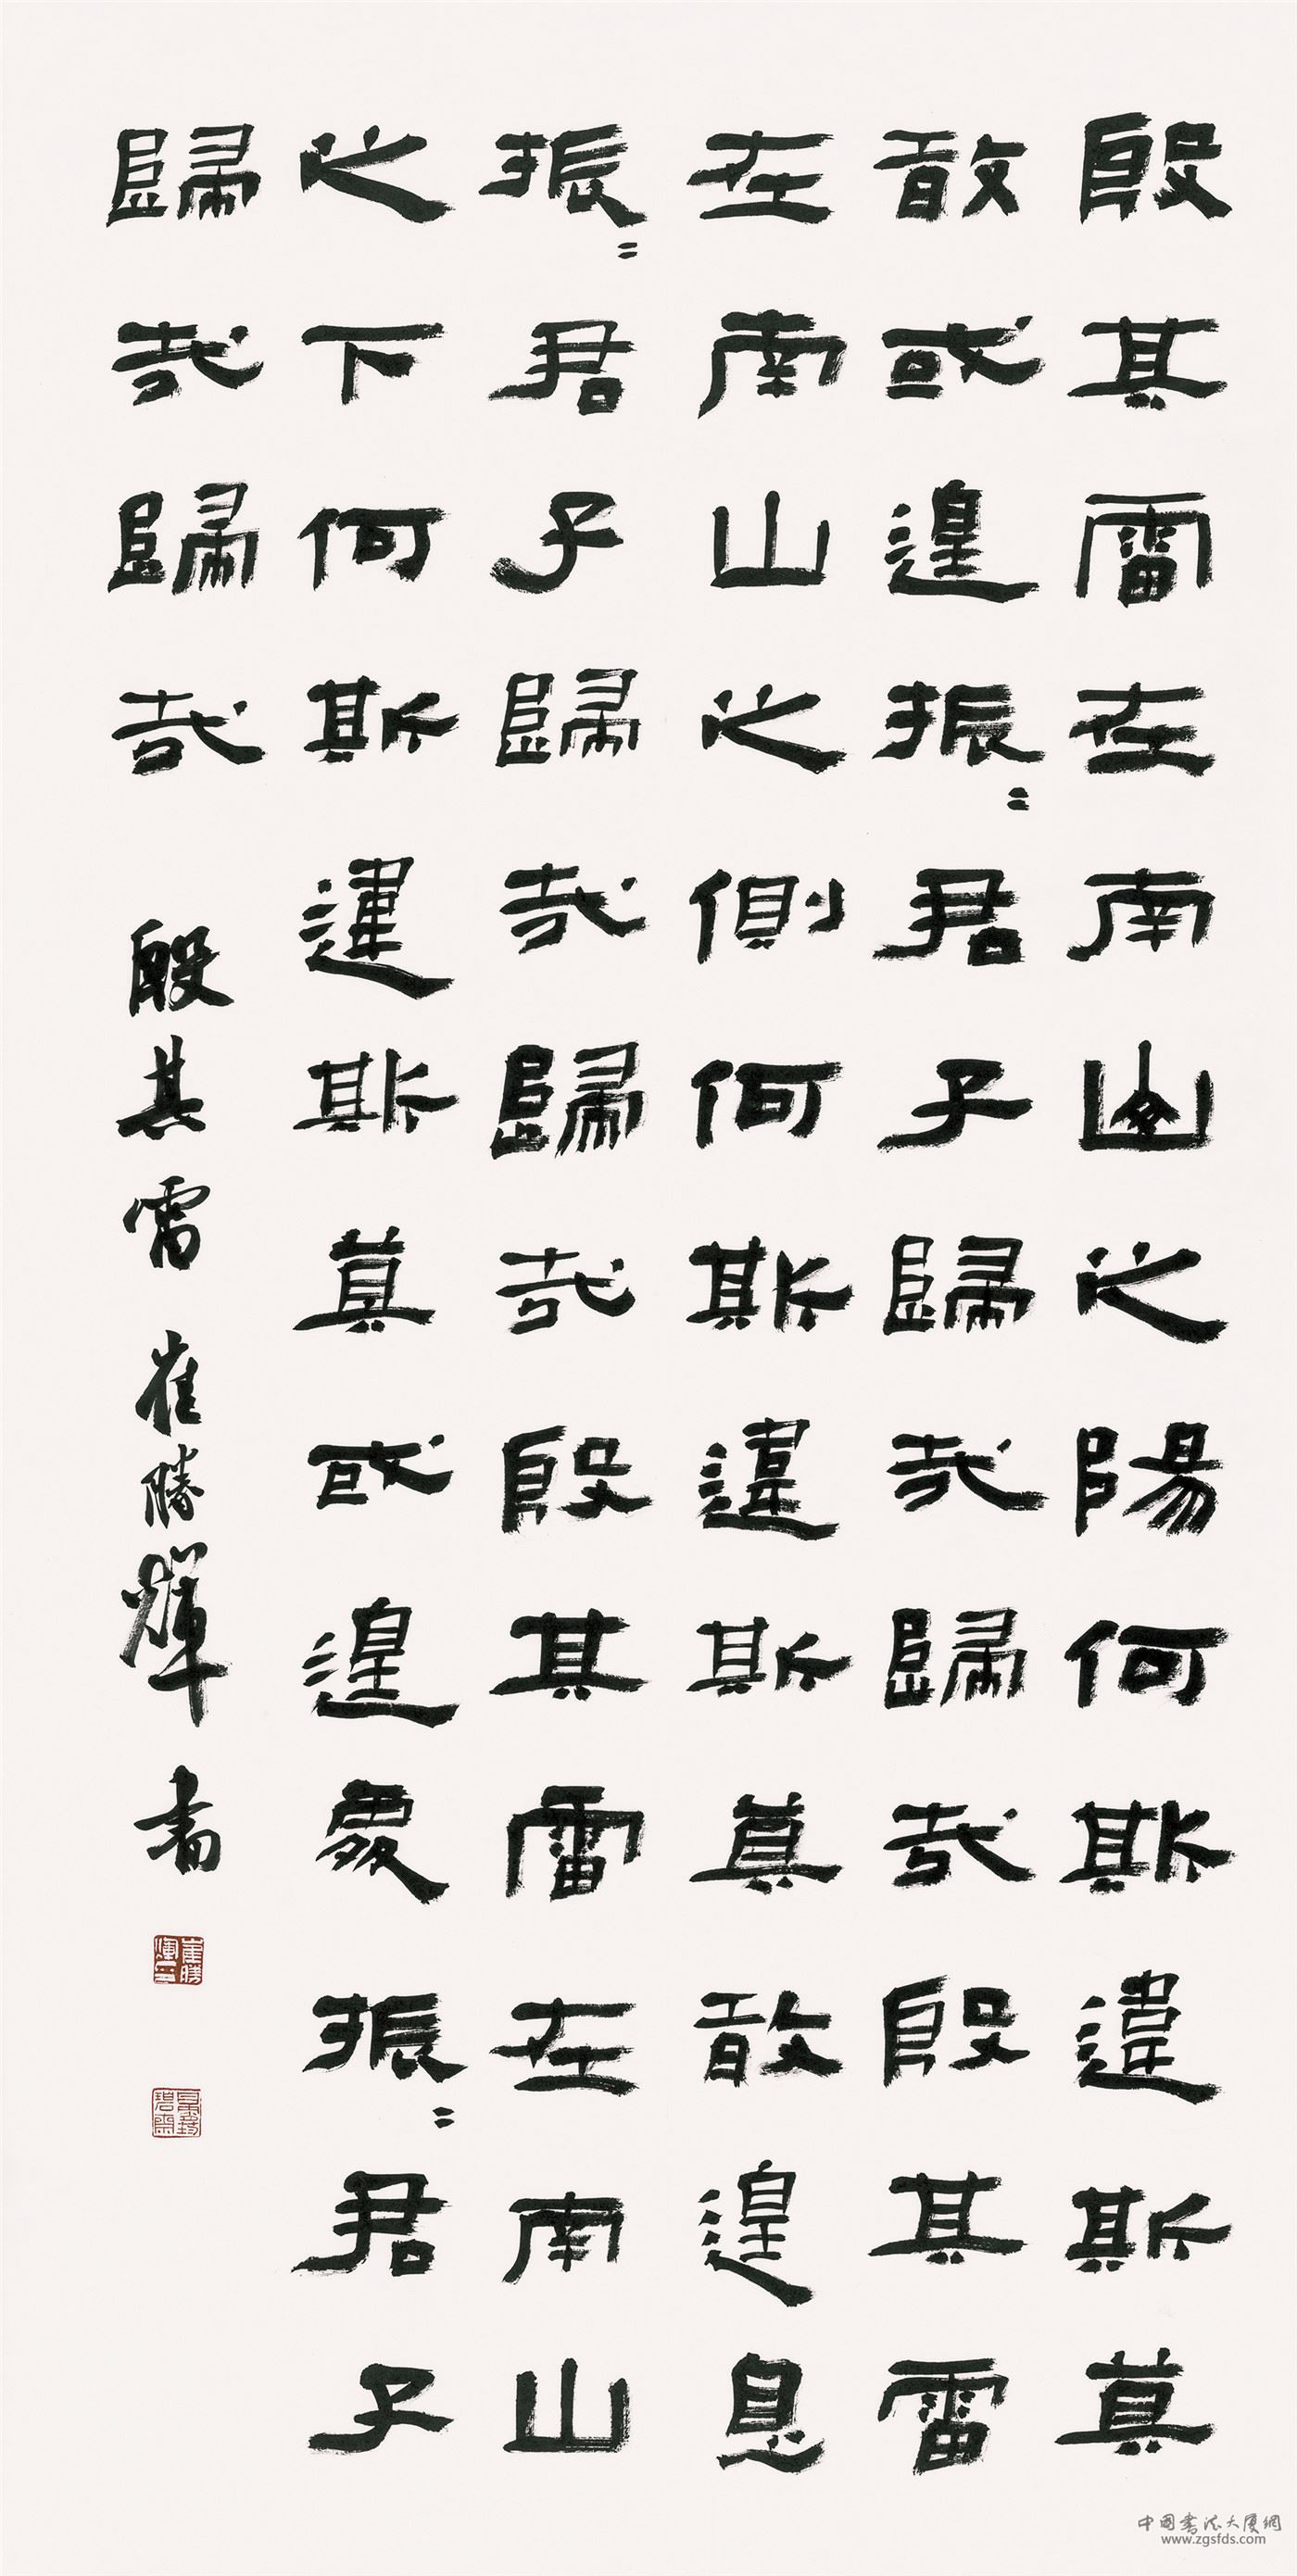 殷其雷在南山之陽何斯違斯莫
敢或遑振〻君子歸哉歸哉殷其雷
在南山之側何斯違斯莫敢遑息
振〻君子歸哉歸哉殷其雷在南山
之下何斯違斯莫或遑處振〻君子
歸哉歸哉 殷其雷 崔勝輝書
中国书法大厦網
www.zgsfds.com